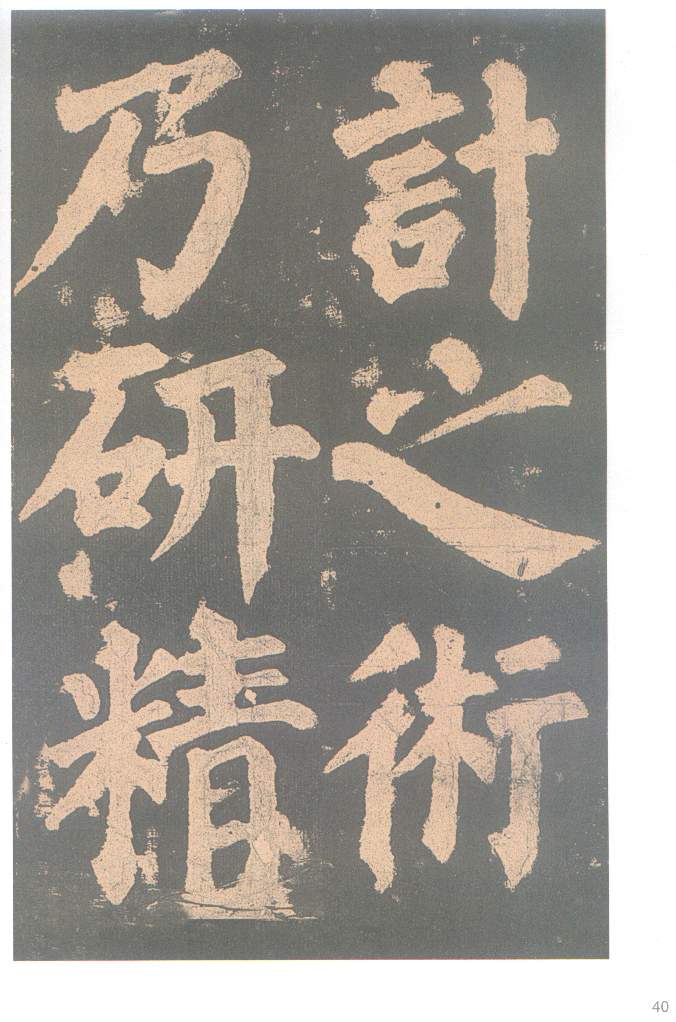 計之術
乃研精
40